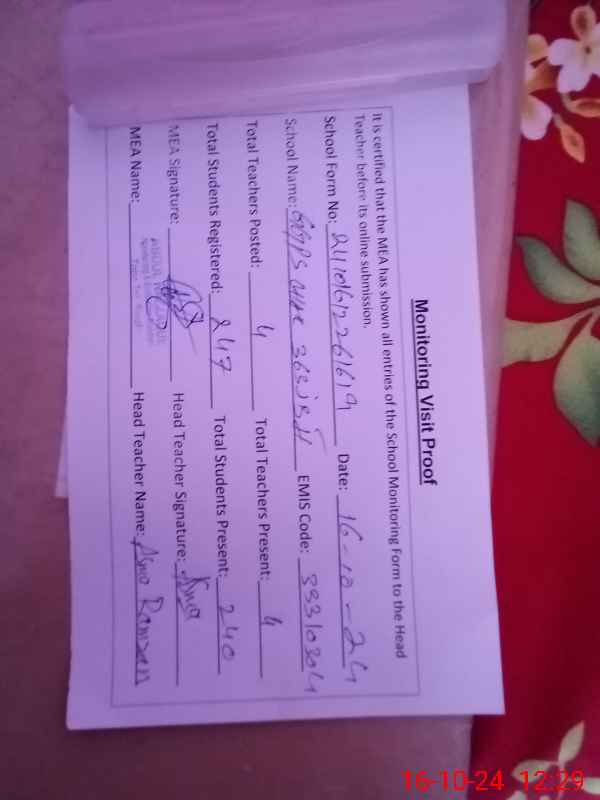 Monitoring Visit Proof
It is certified that the MEA has shown all entries of the School Monitoring Form to the Head
Teacher before its online submission.
School Form No: Date: 16-10-24
School Name: GGPS EMIS Code: 33310304
Total Teachers Posted: 4 Total Teachers Present: 4
Total Students Registered: 247 Total Students Present: 240
MEA Signature: Head Teacher Signature: Asma
MEA Name: Head Teacher Name: Asma Ramzan
16-10-24 12:29